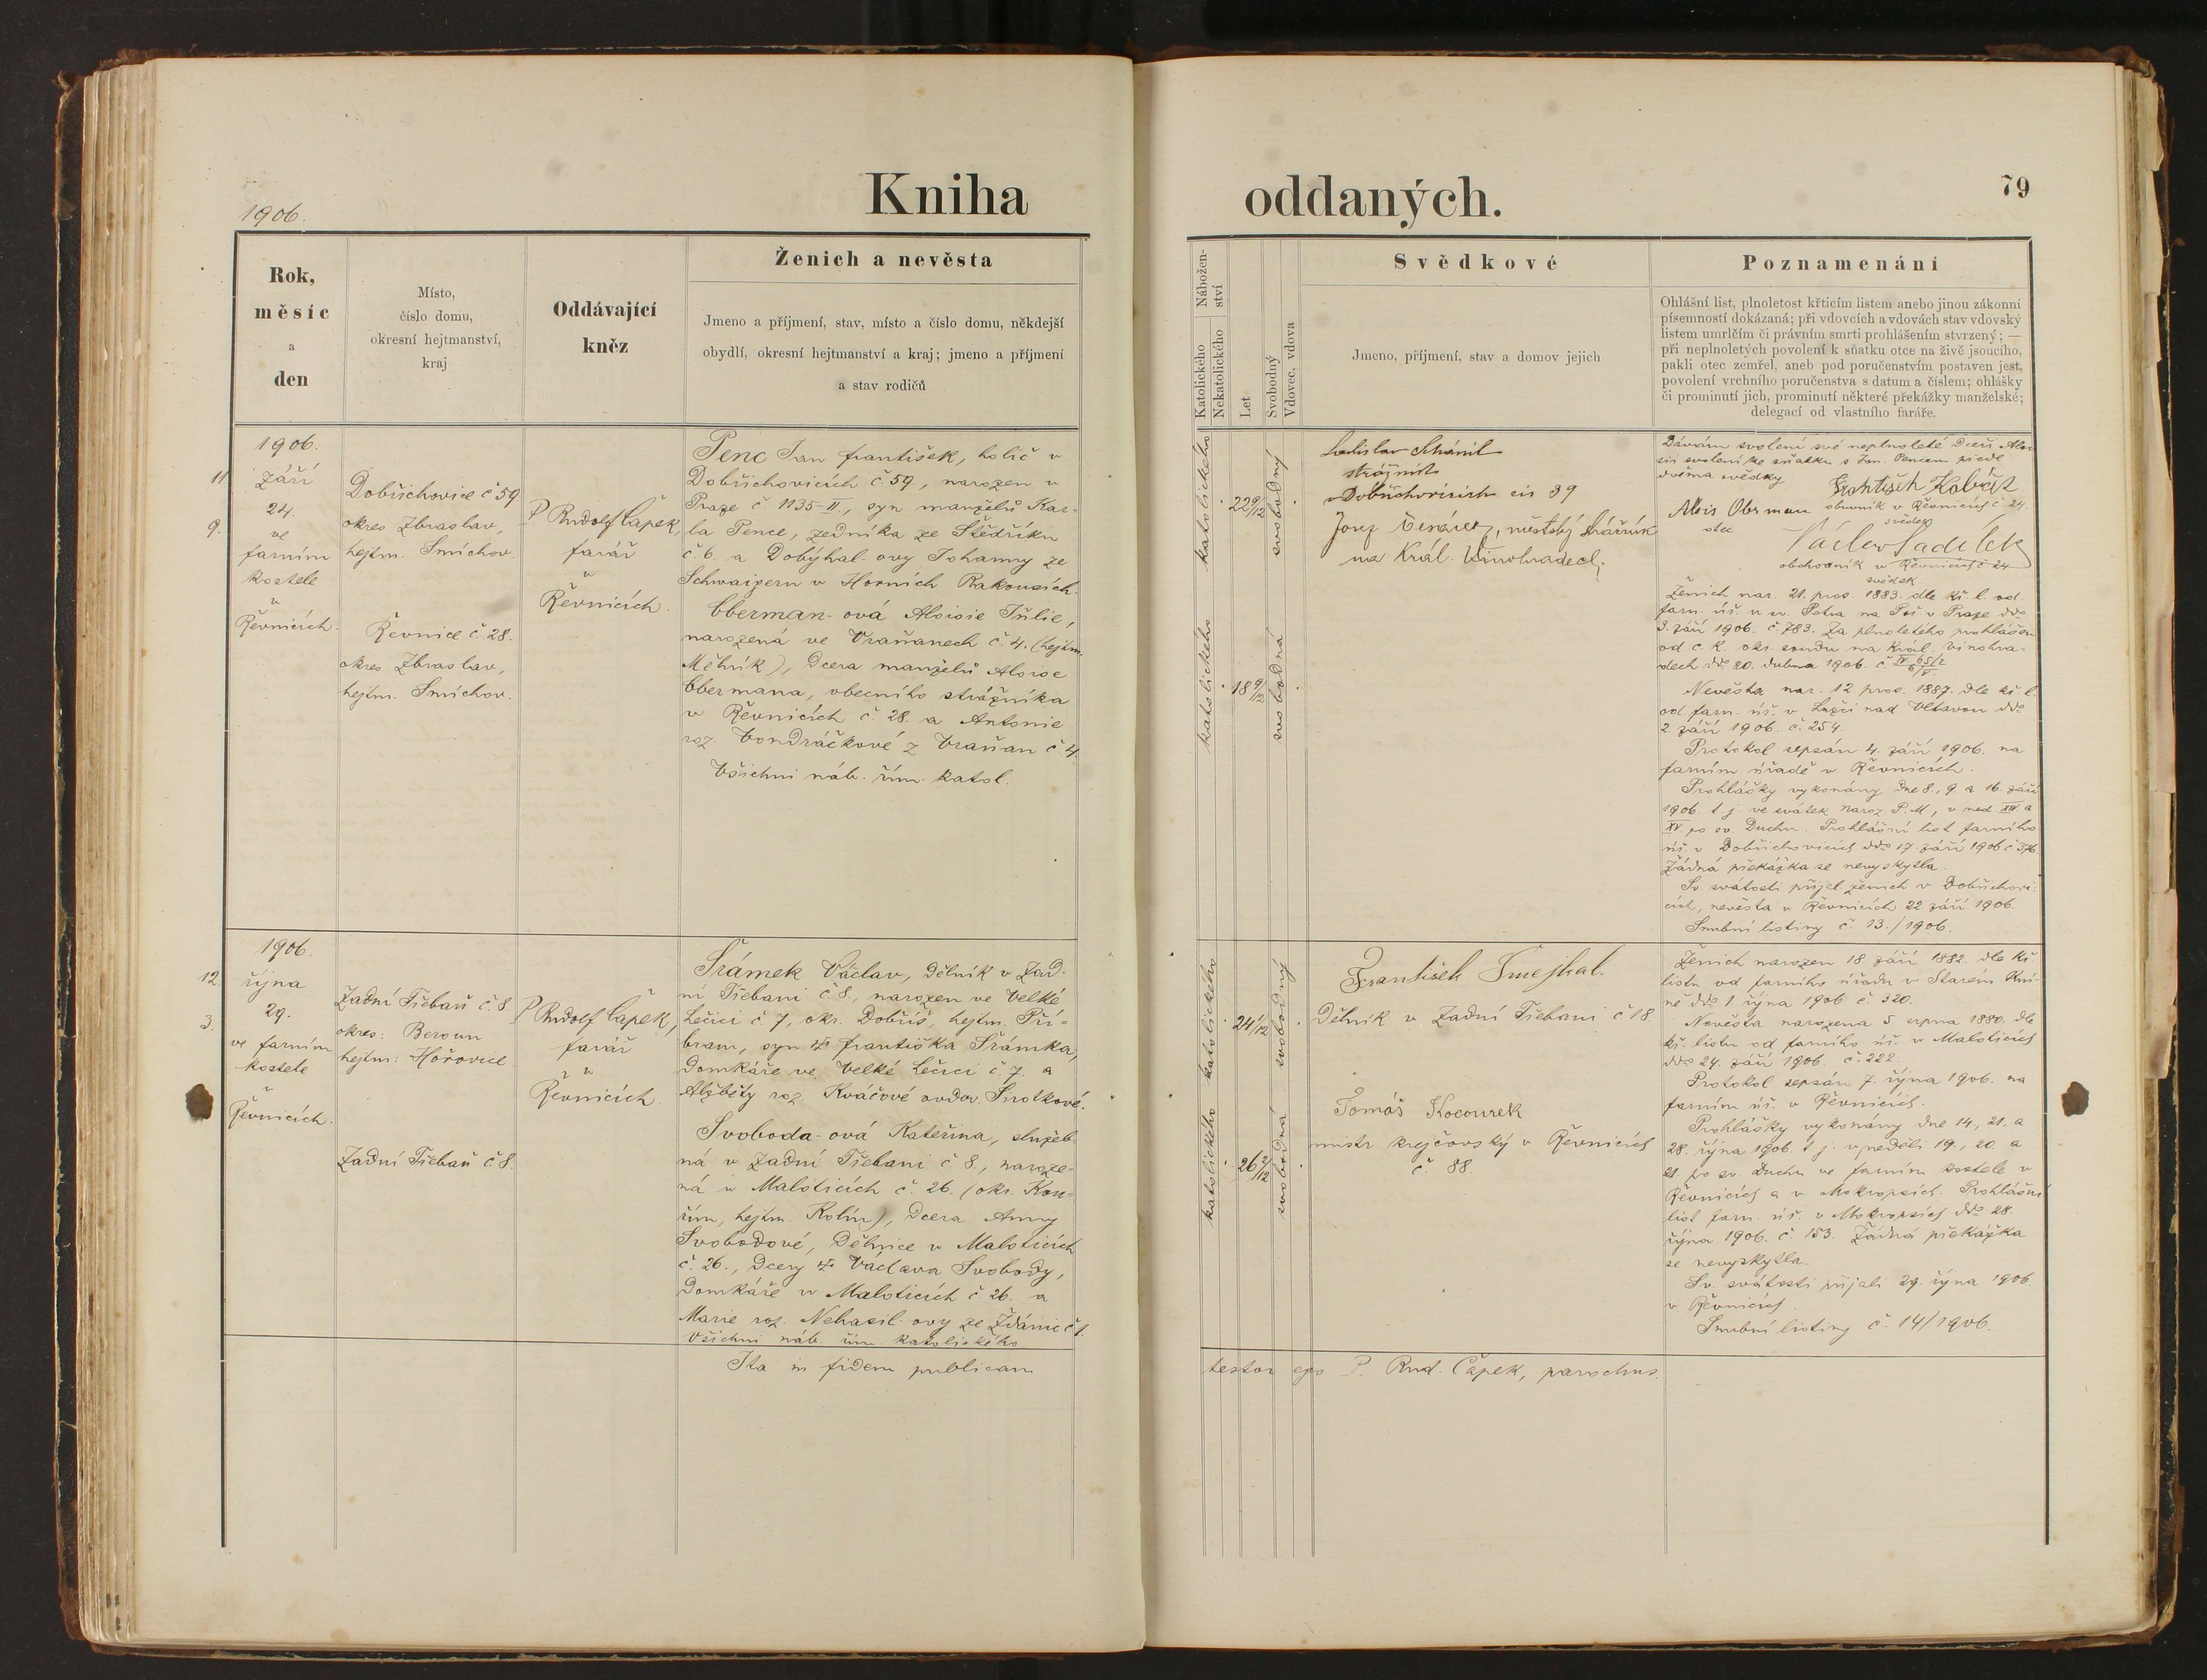 1906.
Kniha
oddaných.
79
Rok,
měsíc
a
den
Místo,
číslo domu,
okresní hejtmanství,
kraj
Oddávající
kněz
Ženich a nevěsta
Jmeno a příjmení, stav, místo a číslo domu, někdejší
obydlí, okresní hejtmanství a kraj; jmeno a příjmení
a stav rodičů
Nábožen-
ství
Katolického
Nekatolického
Let
Svobodný
Vdovec, vdova
Svědkové
Jmeno, příjmení, stav a domov jejich
Poznamenání
Ohlášní list, plnoletost křticím listem anebo jinou zákonní
písemností dokázaná; při vdovcích a vdovách stav vdovský
listem umrlčím či právním smrti prohlášením stvrzený; —
při neplnoletých povolení k sňatku otce na živě jsoucího,
pakli otec zemřel, aneb pod poručenstvím postaven jest,
povolení vrchního poručenstva s datum a číslem; ohlášky
či prominutí jich, prominutí některé překážky manželské;
delegací od vlastního faráře.
11.
9.
1906.
září
24.
ve
farním
kostele
v
Řevnicích.
Dobřichovice č 59
okres Zbraslav,
hejtm. Smíchov.
Řevnice č. 28.
okres Zbraslav,
hejtm. Smíchov.
P Rudolf Čapek,
farář
v
Řevnicích.
Penc Jan František, holič v
Dobřichovicích č 59, narozen v
Praze č 1135-II, syn manželů Kar-
la Pence, zedníka ze Štědříku
č. 6. a Dobýhal-ovy Johanny ze
Schwaigern v Horních Rakousích.
Obermanová Aloisie Julie,
narozená ve Vraňanech č. 4. (hejtm.
Mělník), dcera manželů Aloise
Obermana, obecního strážníka
v Řevnicích č. 28. a Antonie
roz. Vondráčkové z Vraňan č. 4.
Všichni náb. řím. katol.
katolického
22 9/12
svobodný
katolického
18 9/12
svobodná
Ladislav
strážník
v Dobřichovicích čis 39
Josef , městský strážník
na Král. Vinohradech.
Dávám svolení své neplnoleté dceři Aloi
sii svolení ke sňatku s Jan. Pencem před
dvěma svědky.
František
Alois Obrman
otec
obuvník v Řevnicích č. 24.
svědek
Václav Sadílek
obchodník v Řevnicích č 24
svědek
Ženich nar. 21. pros. 1883. dle kř. l. od
farn. úř. u sv. Petra na Poř. v Praze ddo
3. září 1906. č 783. Za plnoletého prohlášen
od c. k. okr. soudu na Král. Vinohra-
dech ddo 20. dubna 1906. č.
Nevěsta nar. 12 pros. 1887. dle kř. l.
od farn. úř. v Lužci nad Vltavou ddo
2. září 1906. č. 254.
Protokol sepsán 4. září 1906. na
farním úřadě v Řevnicích.
Prohlášky vykonány dne 8., 9. a 16. září
1906. t j. ve svátek naroz P. M., v ned. XIV. a
XV. po sv. Duchu. Prohlášní list farního
úř. v Dobřichovicích ddo 17. září 1906 č 376.
Žádná překážka se nevyskytla.
Sv. svátosti přijal ženich v Dobřichovi-
cích, nevěsta v Řevnicích 22 září 1906.
Snubní listiny č. 13./1906.
12.
3.
1906.
října
29.
ve farním
kostele
v
Řevnicích.
Zadní Třebaň č. 8.
okres: Beroun
hejtm: Hořovice
Zadní Třebaň č 8.
P Rudolf Čapek,
farář
v
Řevnicích.
Šrámek Václav, dělník v Zad-
ní Třebani č. 8., narozen ve Velké
Lečici č 7, okr. Dobříš, hejtm. Pří-
bram, syn † Františka Šrámka,
domkáře ve Velké Lečici č 7. a
Alžběty roz. Kváčové ovdov. Smolkové.
Svoboda-ová Kateřina, služeb-
ná v Zadní Třebani č 8., naroze-
ná v Maloticích č. 26. (okr. Kou-
řim, hejtm Kolín), dcera Anny
Svobodové, dělnice v Maloticích
č. 26., dcery † Václava Svobody,
domkáře v Maloticích č 26. a
Marie roz. Nehasil-ovy ze Ždánic č 1.
Všichni náb. řím. katolického.
katolického
24 1/12
svobodný
katolického
26 2/12
svobodná
František Smejkal.
Dělník v Zadní Třebani č 18
Tomáš Kocourek
mistr krejčovský v Řevnicích
č. 88.
Ženich narozen 18. září 1882. dle kř.
listu od farního úřadu v Starém Kní-
ně ddo 1. října 1906 č 320.
Nevěsta narozena 5. srpna 1880. dle
kř. listu od farního úř. v Maloticích
ddo 24. září 1906. č. 222.
Protokol sepsán 7. října 1906. na
farním úř. v Řevnicích.
Prohlášky vykonány dne 14., 21. a
28. října 1906. t j. v neděli 19., 20. a
21. po sv. Duchu ve farním kostele v
Řevnicích a v Mokropsích. Prohlášní
list farn. úř. v Mokropsích ddo 28.
října 1906. č. 153. Žádná překážka
se nevyskytla.
Sv. svátosti přijali 29. října 1906.
v Řevnicích.
Snubní listiny č. 14/1906.
Ita in fidem publicam
testor ego P. Rud. Čapek, parochus.